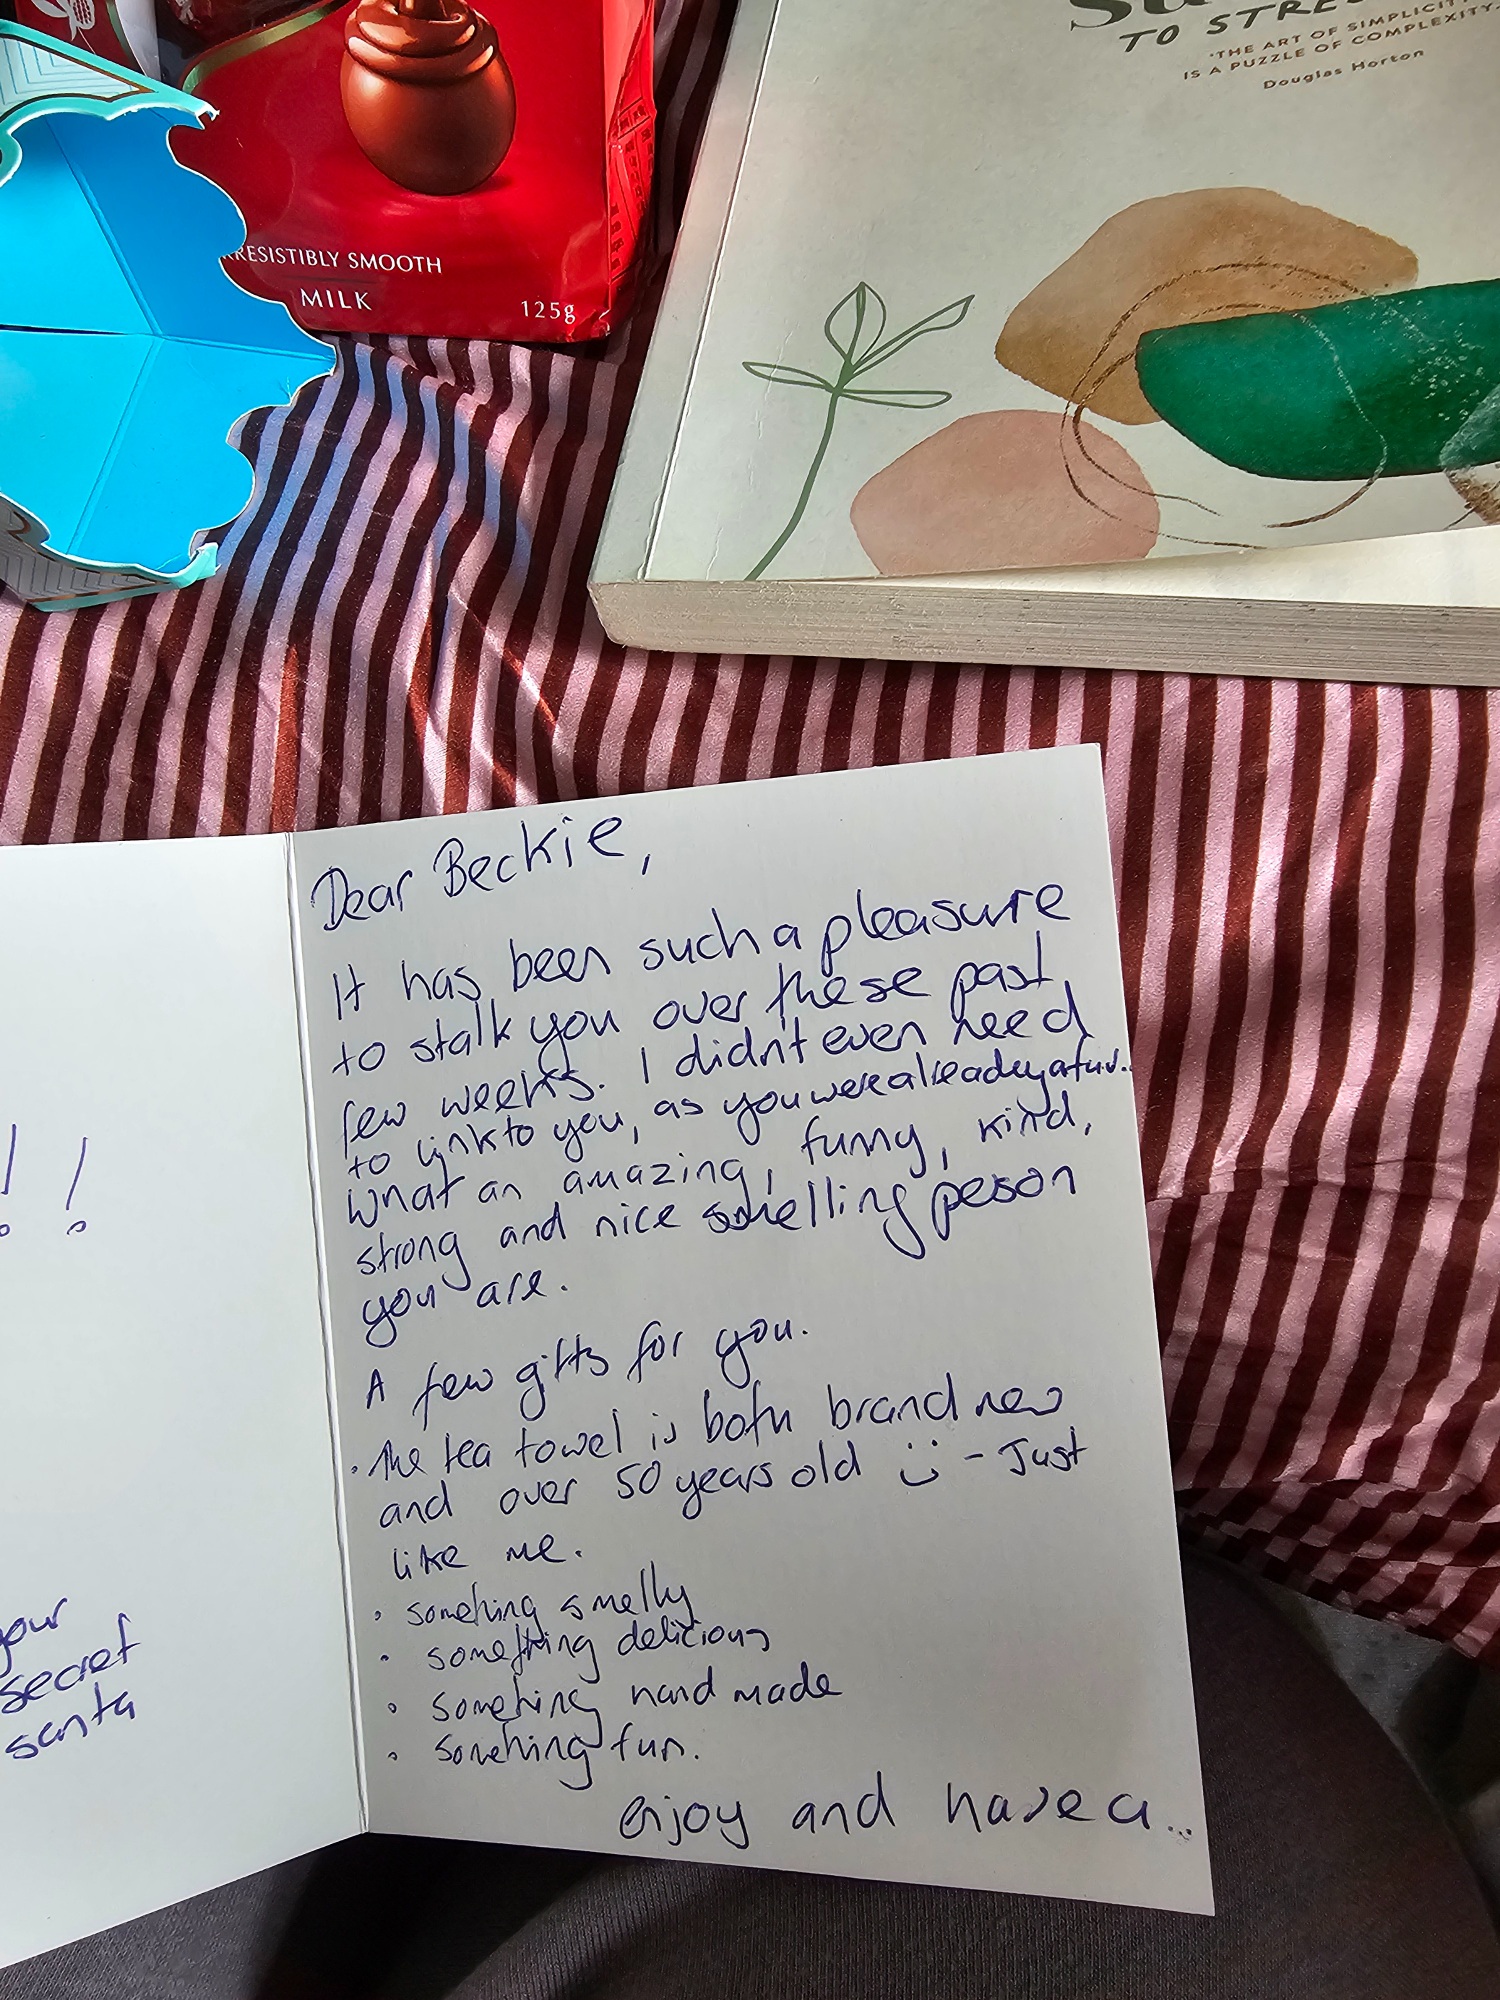 RRESISTIBLY SMOOTH
MILK
125g
TO STRE
·THE ART OF SIMPLICIT
IS A PUZZLE OF COMPLEXITY.
Douglas Horton
! !
your
secret
santa
Dear Beckie,
It has been such a pleasure
to stalk you over these past
few weeks. I didn't even need
to link to you, as you were already a fav..
What an amazing, funny, kind,
strong and nice smelling peson
you are.
A few gifts for you.
• The tea towel is both brand new
and over 50 years old ü - Just
like me.
• something smelly
• something delicious
• something hand made
• something fun.
Enjoy and have a...